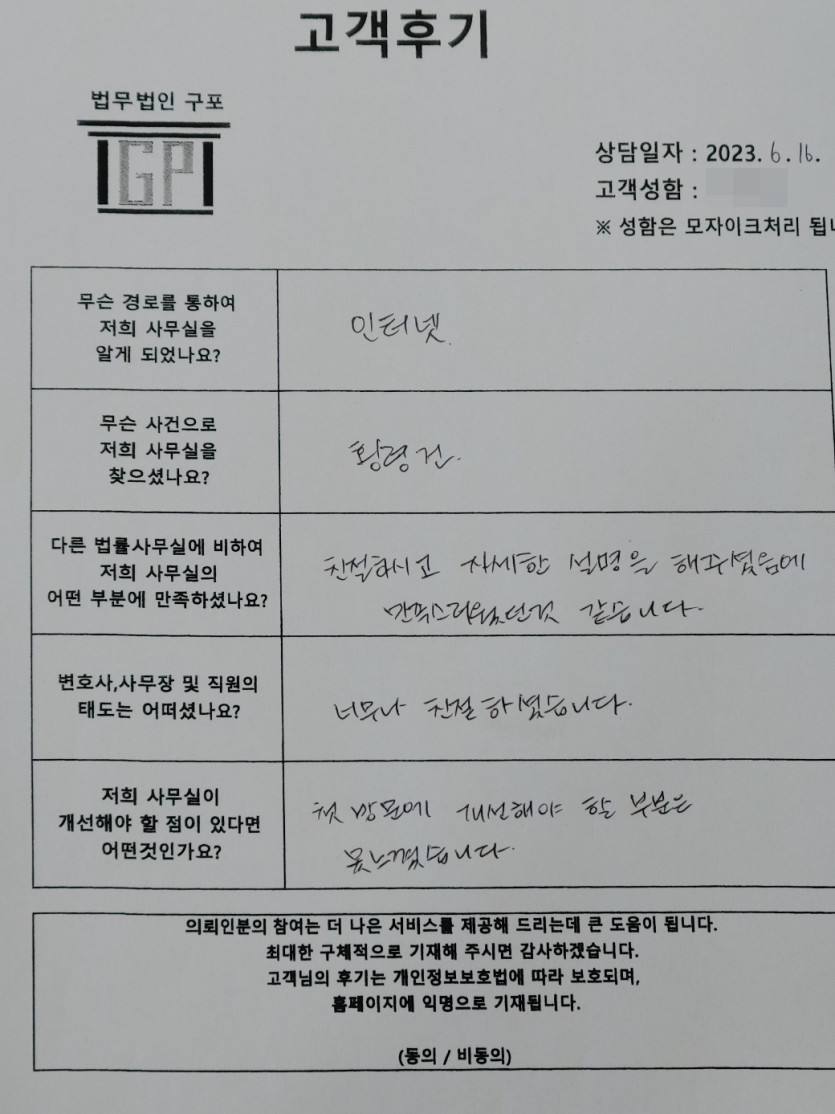 고객후기
법무법인 구포
GP
상담일자 : 2023. 6. 16.
고객성함 :
※ 성함은 모자이크처리 됩니
무슨 경로를 통하여
저희 사무실을
알게 되었나요?
인터넷.
무슨 사건으로
저희 사무실을
찾으셨나요?
횡령 건.
다른 법률사무실에 비하여
저희 사무실의
어떤 부분에 만족하셨나요?
친절하시고 자세한 설명을 해주셨음에
만족스러웠던것 같습니다.
변호사,사무장 및 직원의
태도는 어떠셨나요?
너무나 친절하셨습니다.
저희 사무실이
개선해야 할 점이 있다면
어떤것인가요?
첫 방문에 개선해야 할 부분은
못느꼈습니다.
의뢰인분의 참여는 더 나은 서비스를 제공해 드리는데 큰 도움이 됩니다.
최대한 구체적으로 기재해 주시면 감사하겠습니다.
고객님의 후기는 개인정보보호법에 따라 보호되며,
홈페이지에 익명으로 기재됩니다.
(동의 / 비동의)